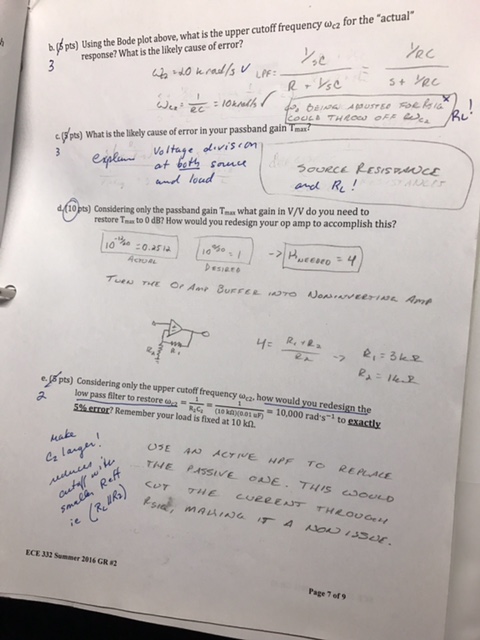 b. (5 pts) Using the Bode plot above, what is the upper cutoff frequency ωc2 for the "actual"
response? What is the likely cause of error?
3
ωc2 = 20 krad/s √ LPF: (1/sC)/(R + 1/sC) = (1/RC)/(s + 1/RC)
ωc2 = 1/RC = 10 krad/s √
BEING ADJUSTED FOR RSIG x
COULD THROW OFF ωc2
RL!
c. (5 pts) What is the likely cause of error in your passband gain Tmax?
3
explain voltage division
at both source
and load
SOURCE RESISTANCE
and RL!
d. (10 pts) Considering only the passband gain Tmax what gain in V/V do you need to
restore Tmax to 0 dB? How would you redesign your op amp to accomplish this?
10^(-12/20) = 0.2512
ACTUAL
10^(0/20) = 1
DESIRED
-> KNEEDED = 4
TURN THE OP AMP BUFFER INTO NONINVERTING AMP
R2 R1
4 = (R1 + R2)/R2 -> R1 = 3kΩ
R2 = 1kΩ
e. (5 pts) Considering only the upper cutoff frequency ωc2, how would you redesign the
2
low pass filter to restore ωc2 = 1/(R2C2) = 1/((10 kΩ)(0.01 uF)) = 10,000 rad·s⁻¹ to exactly
5% error? Remember your load is fixed at 10 kΩ.
make
C2 larger!
reduces
cutoff with
smaller Reff
ie (RL||R2)
USE AN ACTIVE HPF TO REPLACE
THE PASSIVE ONE. THIS WOULD
CUT THE CURRENT THROUGH
RSIG, MAKING IT A NON ISSUE.
ECE 332 Summer 2016 GR #2
Page 7 of 9